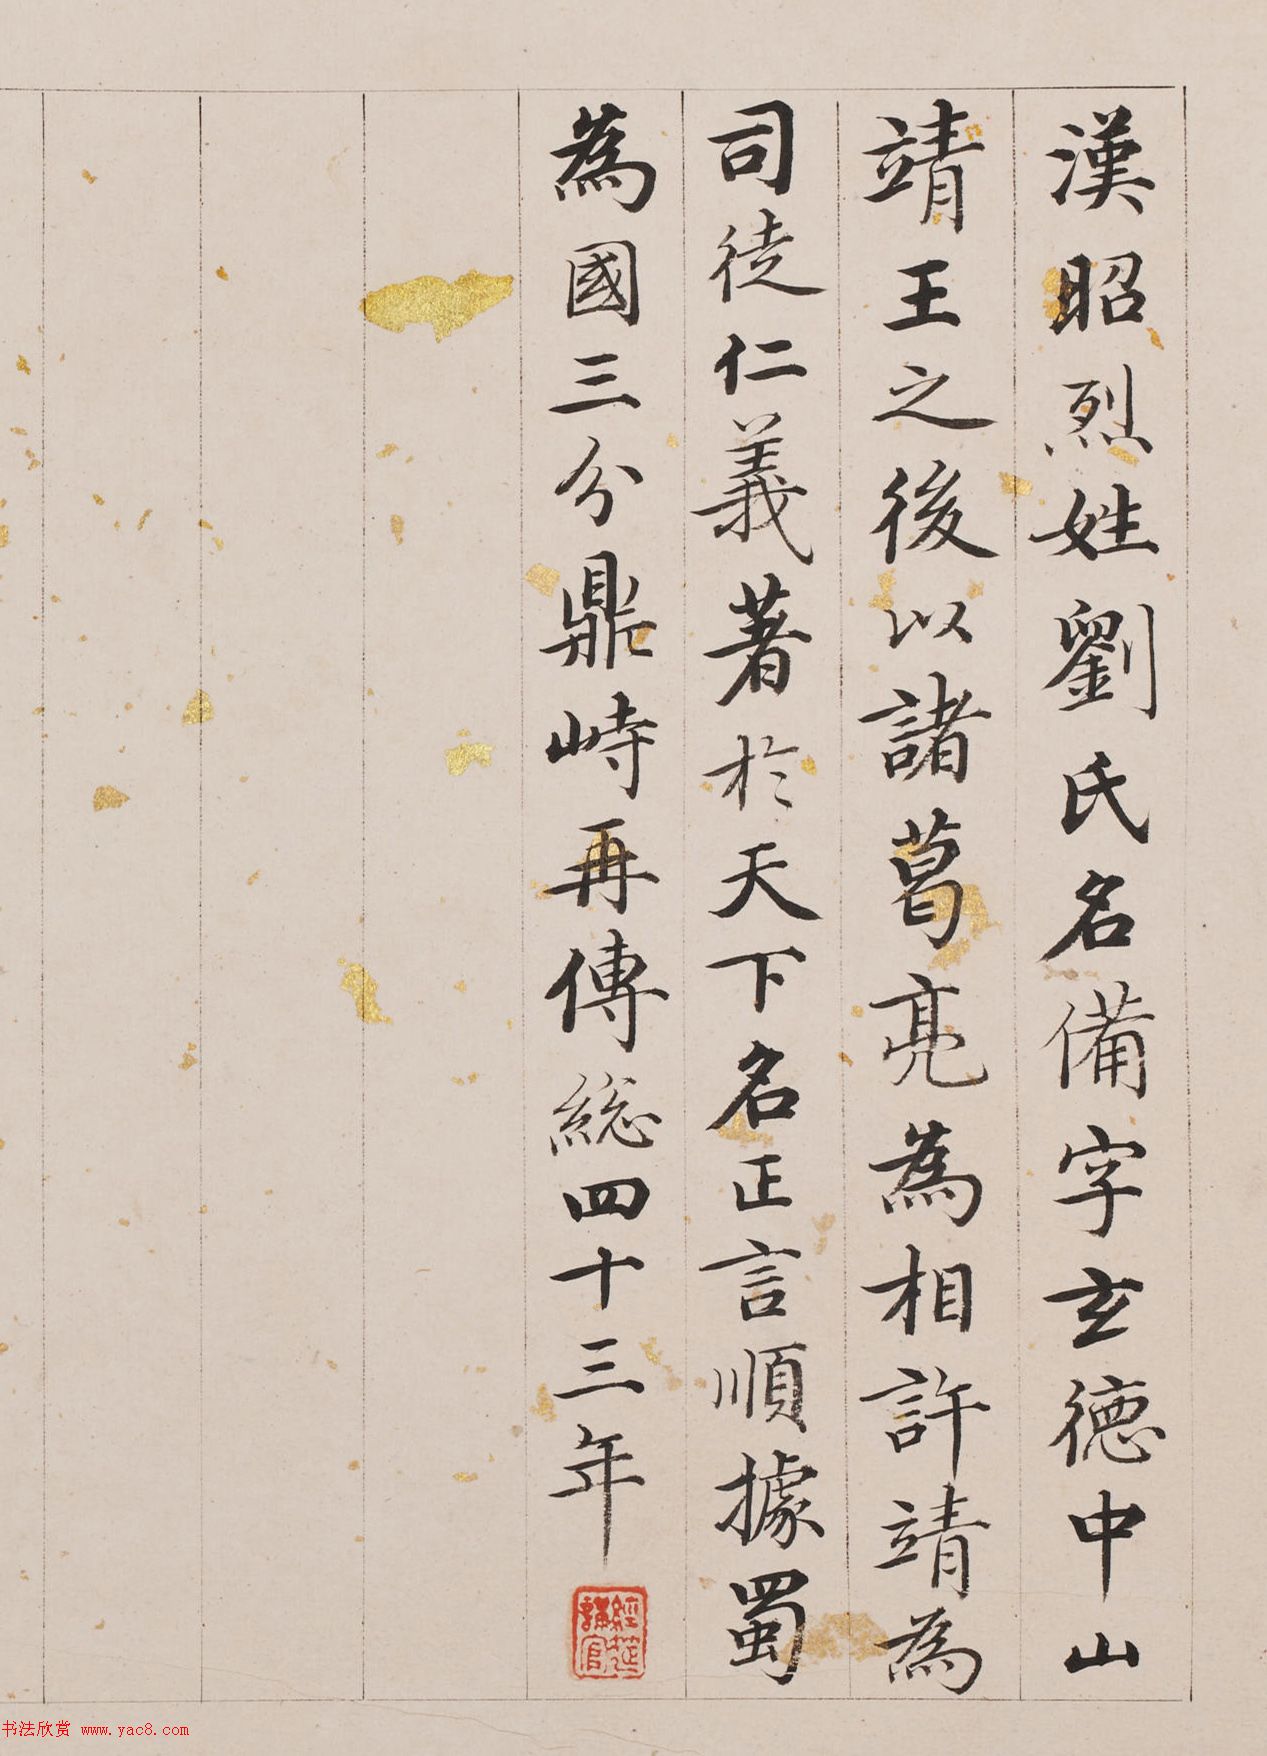 漢昭烈姓劉氏名備字玄德中山
靖王之後以諸葛亮為相許靖為
司徒仁義著於天下名正言順據蜀
為國三分鼎峙再傳総四十三年
經筵
講官
书法欣赏 www.yac8.com